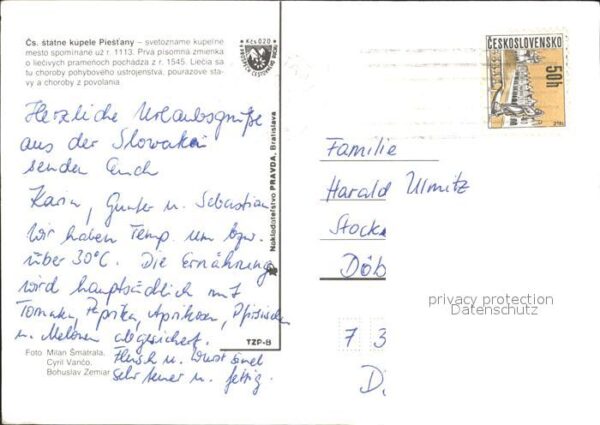 Čs. štátne kupele Piešťany – svetoznáme kupeľné
mesto spomínané už r. 1113. Prvá písomná zmienka
o liečivých prameňoch pochádza z r. 1545. Liečia sa
tu choroby pohybového ústrojenstva, poúrazové sta-
vy a choroby z povolania.
Kčs 0,20
Herzliche Urlaubsgrüße
aus der Slowakei
senden Euch
Karin, Gunter u. Sebastian
Wir haben Temp. um bzw.
über 30°C. Die Ernährung
wird hauptsächlich mit
Tomaten, Paprika, Aprikosen, Pfirsichen
u. Melonen abgesichert.
Fleisch u. Wurst sind
sehr teuer u. fettig.
Foto Milan Šmatrala,
Cyril Vančo,
Bohuslav Zemiar
Nakladateľstvo PRAVDA, Bratislava
TZP-B
ČESKOSLOVENSKO
50h
Familie
Harald Ulmitz
Stocka
Döb
7 3
D.
privacy protection
Datenschutz